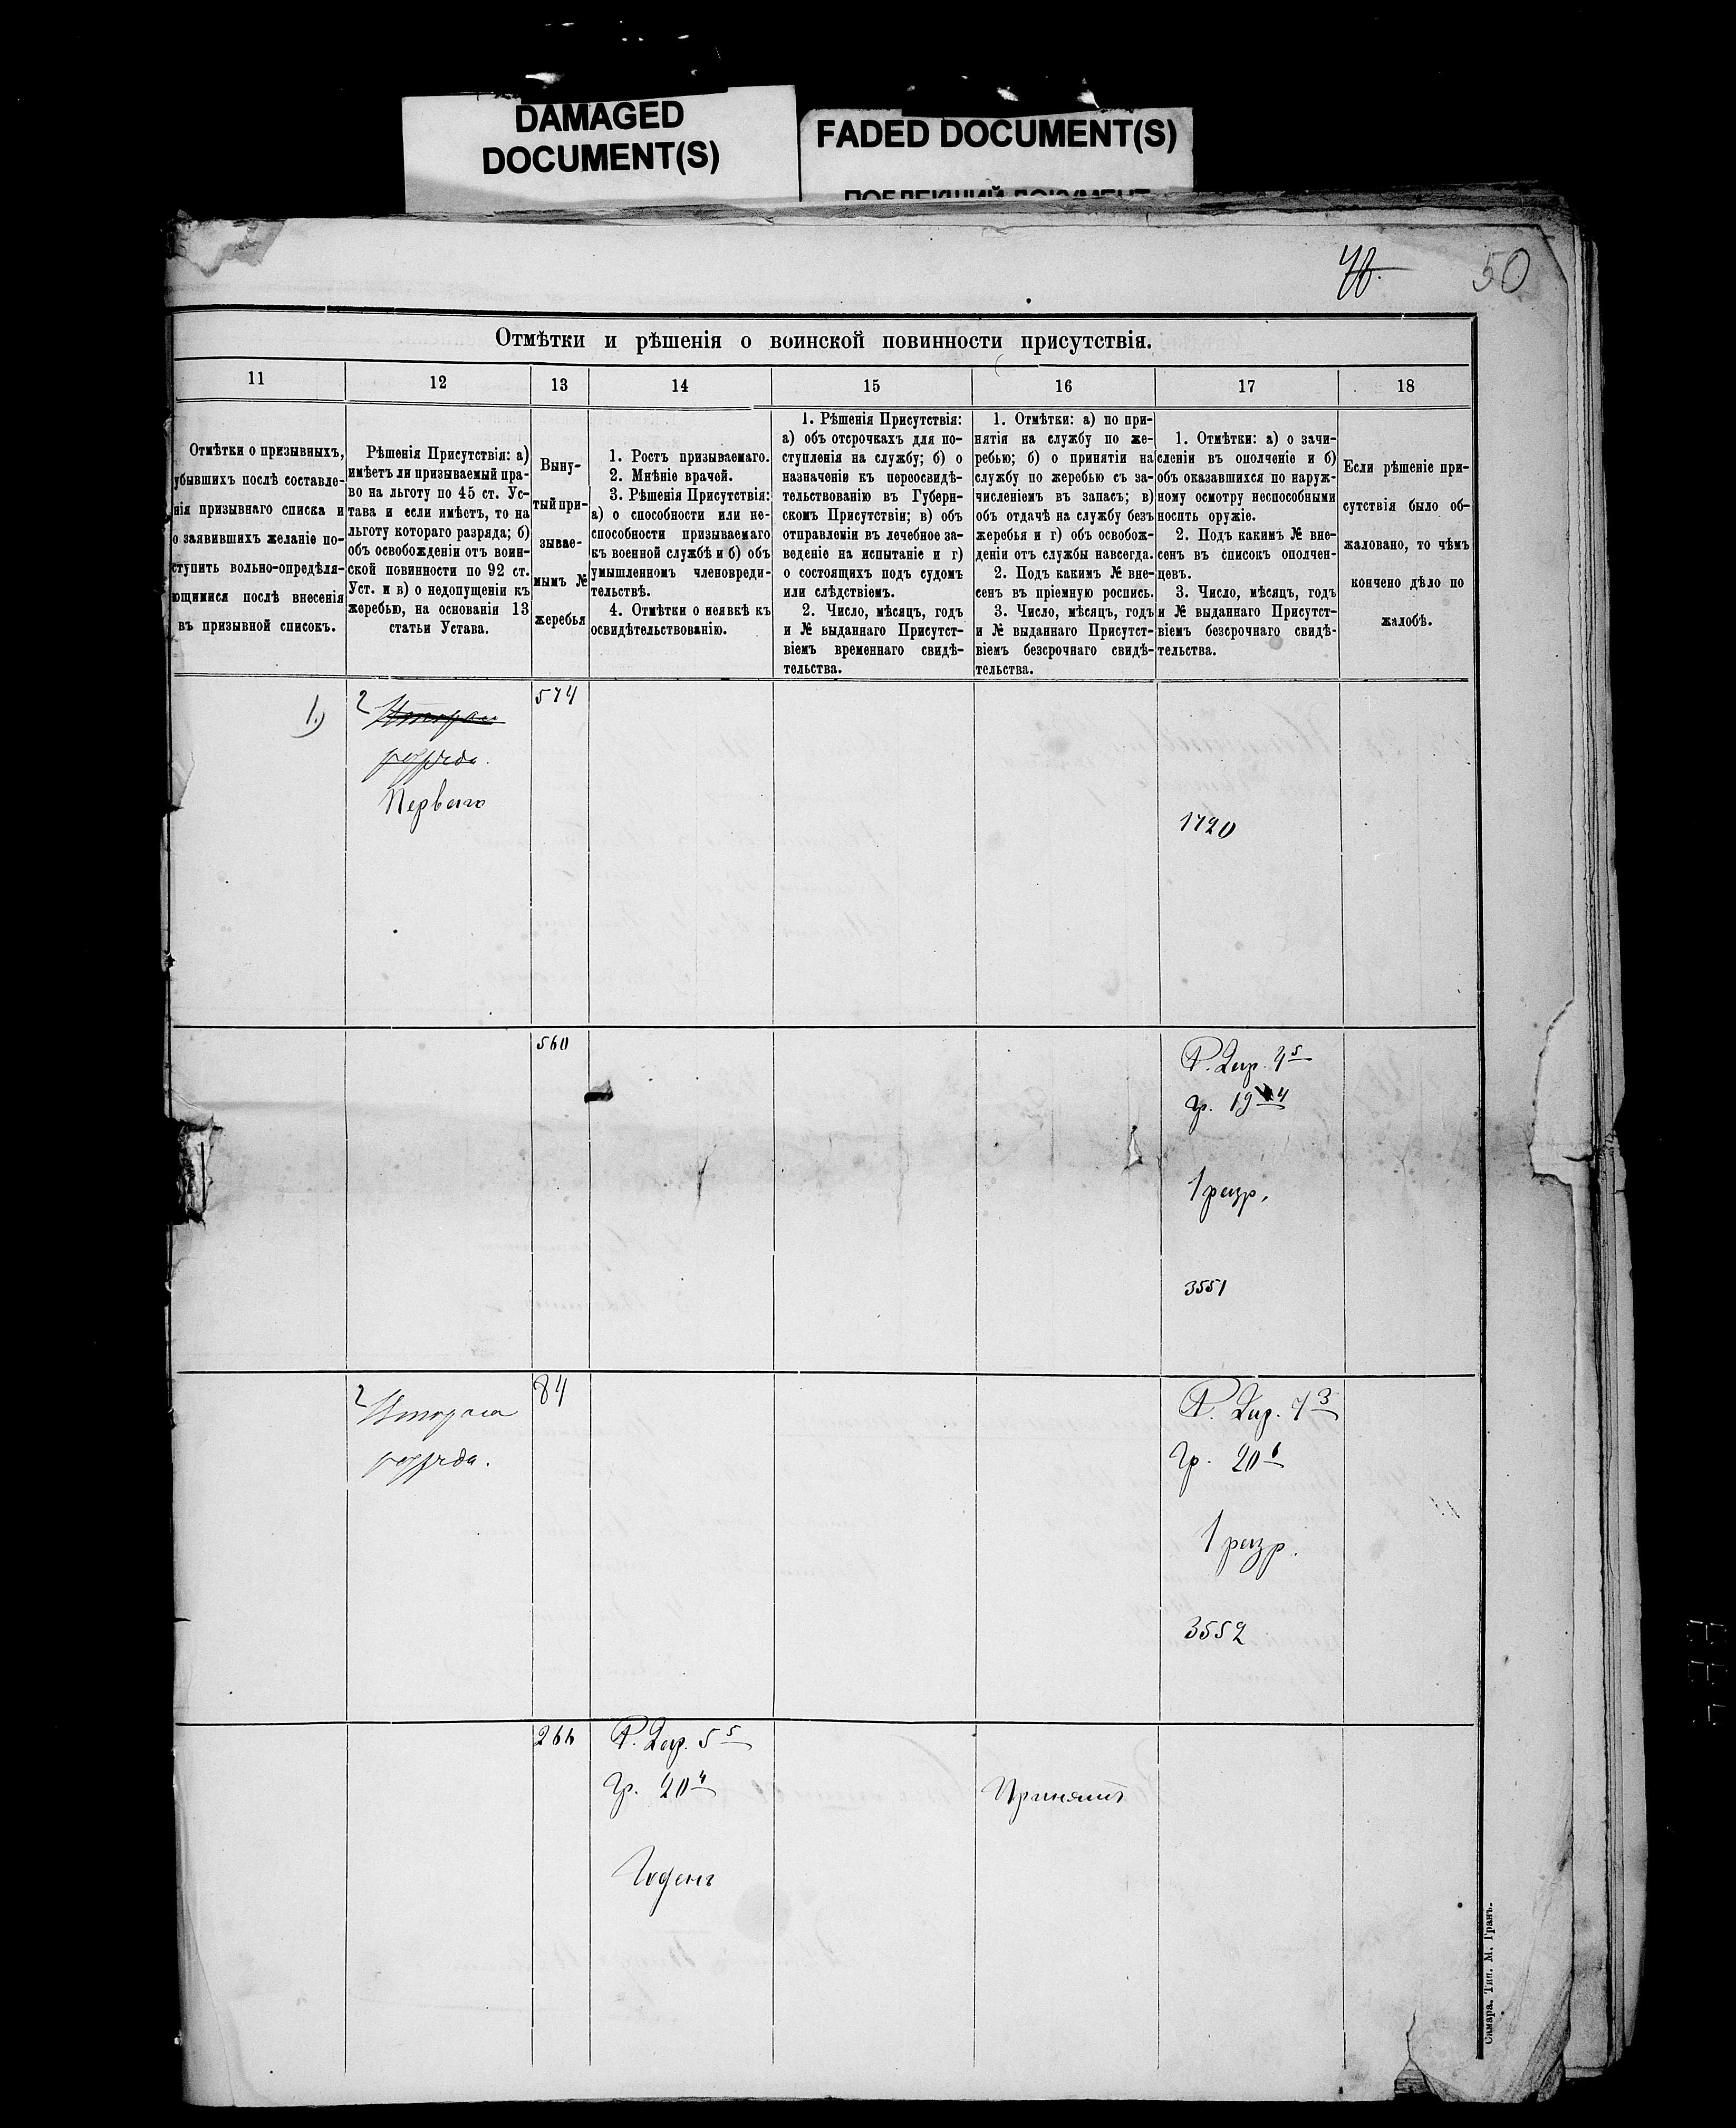 DAMAGED
DOCUMENT(S)
FADED DOCUMENT(S)
50
Отмѣтки и рѣшенія о воинской повинности присутствія.
11
12
13
14
15
16
17
18
Отмѣтки о призывныхъ,
убывшихъ послѣ составле-
нія призывнаго списка и
о заявившихъ желаніе по-
ступить вольно-опредѣля-
ющимися послѣ внесенія
въ призывной списокъ.
Рѣшенія Присутствія: а)
имѣетъ ли призываемый пра-
во на льготу по 45 ст. Ус-
тава и если имѣетъ, то на
льготу котораго разряда; б)
объ освобожденіи отъ воин-
ской повинности по 92 ст.
Уст. и в) о недопущеніи къ
жеребью, на основаніи 13
статьи Устава.
Выну-
тый при-
зывае-
мымъ №
жеребья
1. Ростъ призываемаго.
2. Мнѣніе врачей.
3. Рѣшенія Присутствія:
а) о способности или не-
способности призываемаго
къ военной службѣ и б) объ
умышленномъ членовреди-
тельствѣ.
4. Отмѣтки о неявкѣ къ
освидѣтельствованію.
1. Рѣшенія Присутствія:
а) объ отсрочкахъ для по-
ступленія на службу; б) о
назначеніи къ переосвидѣ-
тельствованію въ Губерн-
скомъ Присутствіи; в) объ
отправленіи въ лечебное за-
веденіе на испытаніе и г)
о состоящихъ подъ судомъ
или слѣдствіемъ.
2. Число, мѣсяцъ, годъ
и № выданнаго Присутст-
віемъ временнаго свидѣ-
тельства.
1. Отмѣтки: а) по при-
нятія на службу по же-
ребью; б) о принятіи на
службу по жеребью съ за-
численіемъ въ запасъ; в)
объ отдачѣ на службу безъ
жеребья и г) объ освобож-
деніи отъ службы навсегда.
2. Подъ какимъ № вне-
сенъ въ пріемную роспись.
3. Число, мѣсяцъ, годъ
и № выданнаго Присутст-
віемъ безсрочнаго свидѣ-
тельства.
1. Отмѣтки: а) о зачи-
сленіи въ ополченіе и б)
объ оказавшихся по наруж-
ному осмотру неспособными
носить оружіе.
2. Подъ какимъ № вне-
сенъ въ списокъ ополчен-
цевъ.
3. Число, мѣсяцъ, годъ
и № выданнаго Присутст-
віемъ безсрочнаго свидѣ-
тельства.
Если рѣшеніе при-
сутствія было об-
жаловано, то чѣмъ
кончено дѣло по
жалобѣ.
1)
2 Втораго
разряда.
Перваго
574
1720
560
Гр. 19
1 разр.
3551
2 Втораго
разряда.
84
Гр. 20 6
1 разр.
3552
266
Гр. 20 4
Годенъ
Принятъ
Самара. Тип. М. Гранъ.